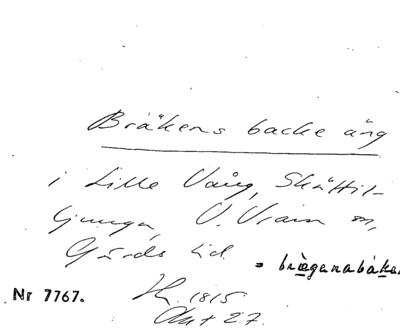 Bräkens backe äng
i Lille Vång, Skättil-
ljunga, V. Vram sn,
Gärds hd.
= brægenabåka
Nr 7767. Hn. 1815
Akt 27.